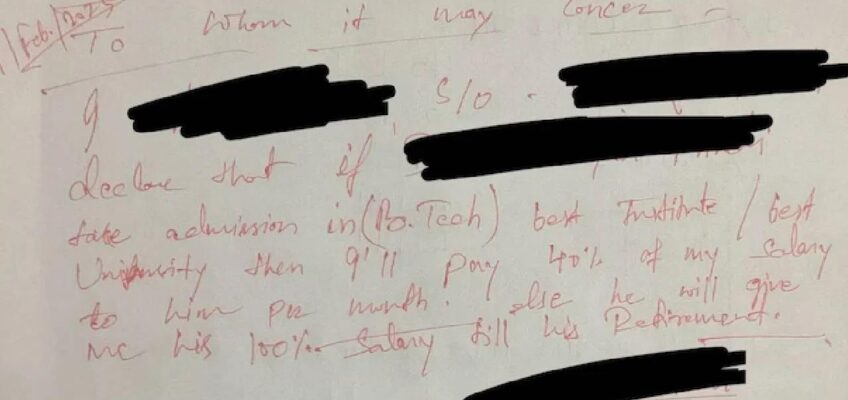 11 Feb. 2025
To Whom it may Concer -
I S/O -
declare that if
take admission in (B.Tech) best Institute / best
University then I'll pay 40% of my Salary
to him per month. else he will give
me his 100% Salary till his Retirement.